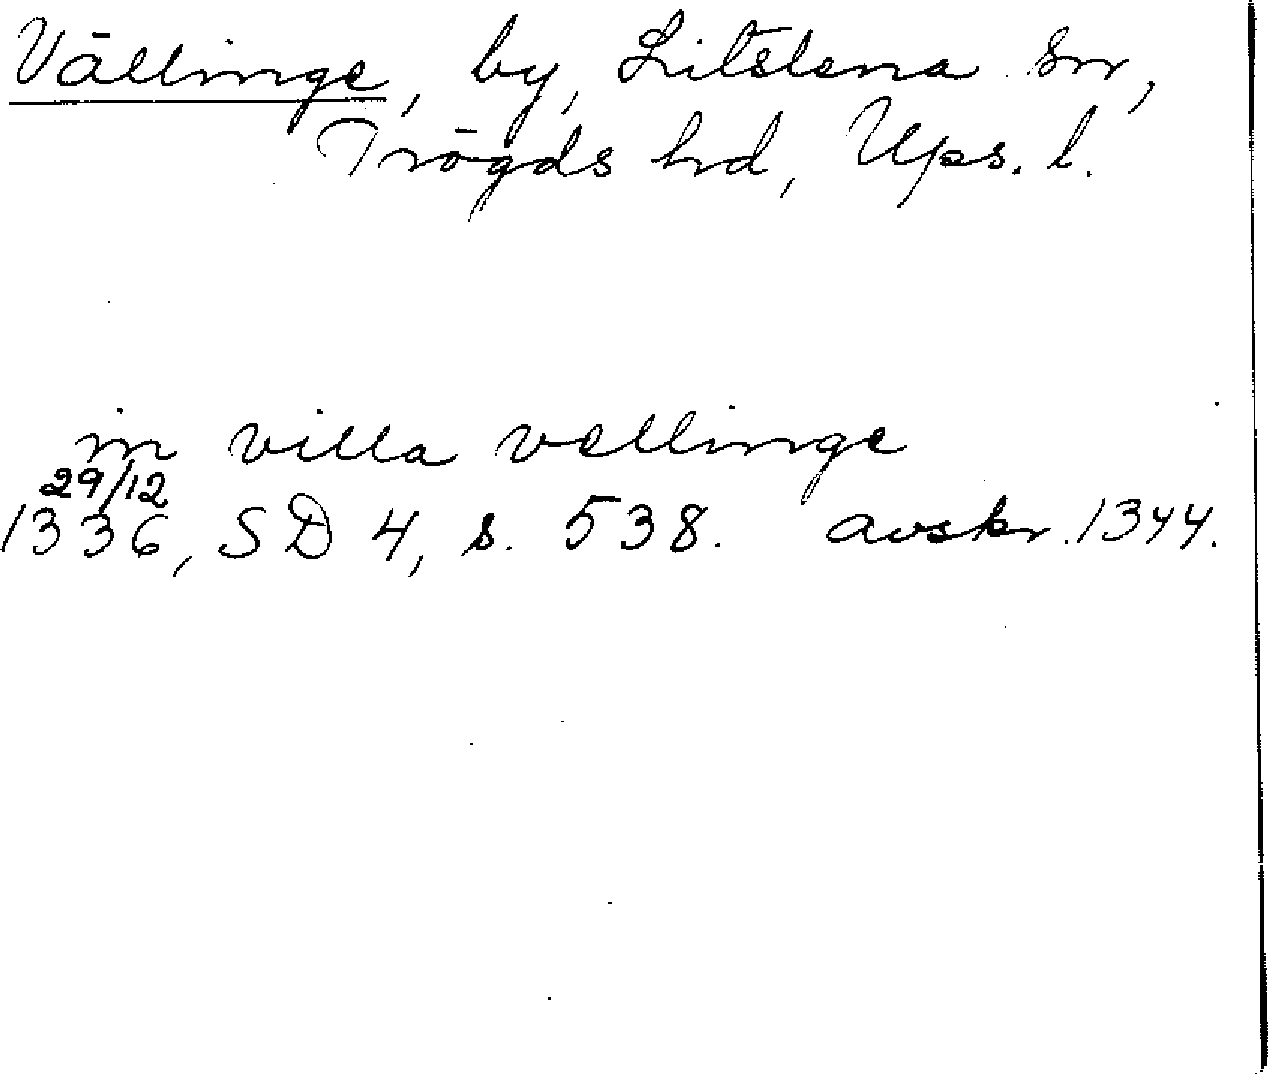 Vällinge, by, Litslena sn,
Trögds hd, Ups. l.
in villa vællinge
29/12
1336, SD 4, s. 538. avskr. 1344.